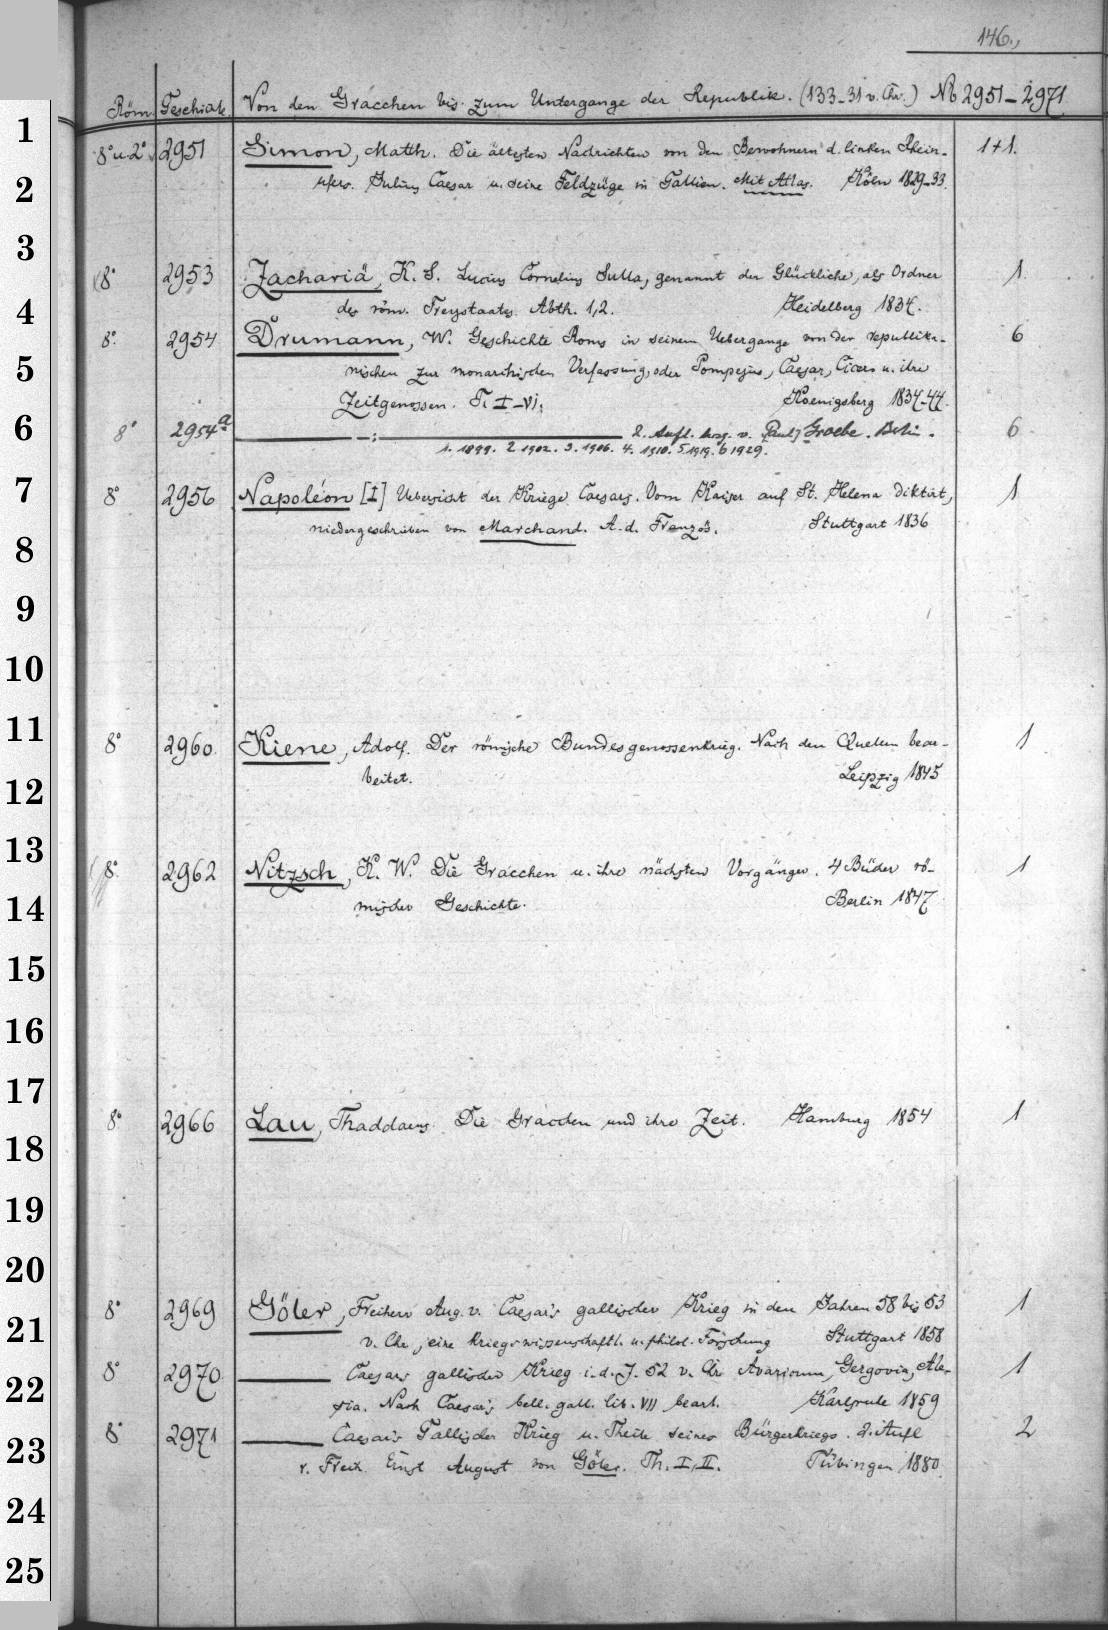 146.,
Röm. Geschicht. Von den Gracchen bis zum Untergange der Republik. (133-31 v. Chr.) No 2951-2971
1
8° u 2° 2951 Simon, Matth. Die ältesten Nachrichten von den Bewohnern d. linken Rhein- 1+1.
2
ufers. Julius Caesar u. seine Feldzüge in Gallien. Mit Atlas. Köln 1829-33.
3
8° 2953 Zachariä, K. S. Lucius Cornelius Sulla, genannt der Glückliche, als Ordner 1
4
des röm. Freystaates. Abth. 1,2. Heidelberg 1834.
8° 2954 Drumann, W. Geschichte Roms in seinem Uebergange von der republika- 6
5
nischen zur monarchischen Verfassung, oder Pompejus, Caesar, Cicero u. ihre
Zeitgenossen. T. I-VI. Koenigsberg 1834-44.
6
8° 2954a — - : — 2. Aufl. hrsg. v. [Paul] Groebe. Berlin. 6
1. 1899. 2 1902. 3. 1906. 4. 1910. 5 1919. 6 1929.
7
8° 2956 Napoléon [I] Uebersicht der Kriege Caesars. Vom Kaiser auf St. Helena diktirt, 1
niedergeschrieben von Marchand. A. d. Französ. Stuttgart 1836
8
9
10
11
8° 2960. Kiene, Adolf. Der römische Bundesgenossenkrieg. Nach den Quellen bear- 1
12
beitet. Leipzig 1845
13
8° 2962 Nitzsch, K. W. Die Gracchen u. ihre nächsten Vorgänger. 4 Bücher rö- 1
14
mischer Geschichte. Berlin 1847.
15
16
17
8° 2966 Lau, Thaddaeus. Die Gracchen und ihre Zeit. Hamburg 1854 1
18
19
20
8° 2969 Göler, Freiherr Aug. v. Caesar's gallischer Krieg in den Jahren 58 bis 53 1
21
v. Chr., eine kriegswissenschaftl. u. philol. Forschung Stuttgart 1858
8° 2970 — Caesars gallischer Krieg i. d. J. 52 v. Chr. Avaricum, Gergovia, Ale- 1
22
sia. Nach Caesar's bell. gall. lib. VII bearb. Karlsruhe 1859
8° 2971 — Caesar's Gallischer Krieg u. Theile seines Bürgerkriegs. 2. Aufl 2
23
v. Freih. Ernst August von Göler. Th. I, II. Tübingen 1880.
24
25